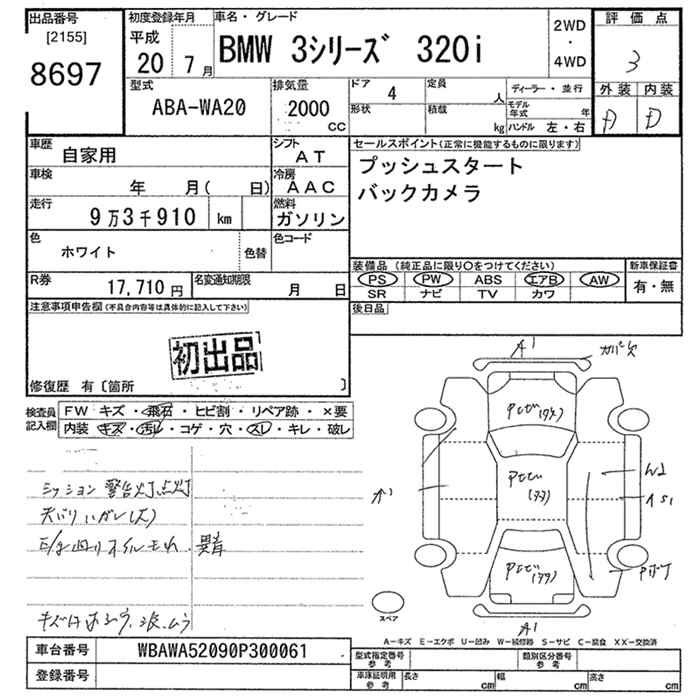 出品番号
[2155]
8697
初度登録年月
平成
20 7月
車名・グレード
BMW 3シリーズ 320i
2WD
・
4WD
評価点
3
外装 内装
D D
型式
ABA-WA20
排気量
2000
CC
ドア 4
形状
定員 人
積載 kg
ディーラー・並行
モデル年式 年
ハンドル 左・右
車歴
自家用
シフト
AT
車検
年 月( 日)
冷房
AAC
走行
9万3千910 km
燃料
ガソリン
色
ホワイト
色替
色コード
R券
17,710円
名変通知期限
月 日
セールスポイント(正常に機能するものに限ります)
プッシュスタート
バックカメラ
装備品(純正品に限り○をつけてください)
PS PW ABS エアB AW
SR ナビ TV カワ
新車保証書
有・無
後日品
注意事項申告欄(不具合内容等は具体的に記入して下さい)
初出品
修復歴 有〔箇所 〕
検査員記入欄
FW キズ・飛石・ヒビ割・リペア跡・×要
内装 キズ・汚レ・コゲ・穴・スレ・キレ・破レ
ミッション警告灯点灯
天バリハガレ(大)
A1
カバー欠
W2
A1
スペア
A1
A－キズ E－エクボ U－凹み W－補修跡 S－サビ C－腐食 XX－交換済
車台番号
WBAWA52090P300061
登録番号
型式指定番号
参考
類別区分番号
参考
車庫証明用
参考
長さ cm
幅 cm
高さ cm